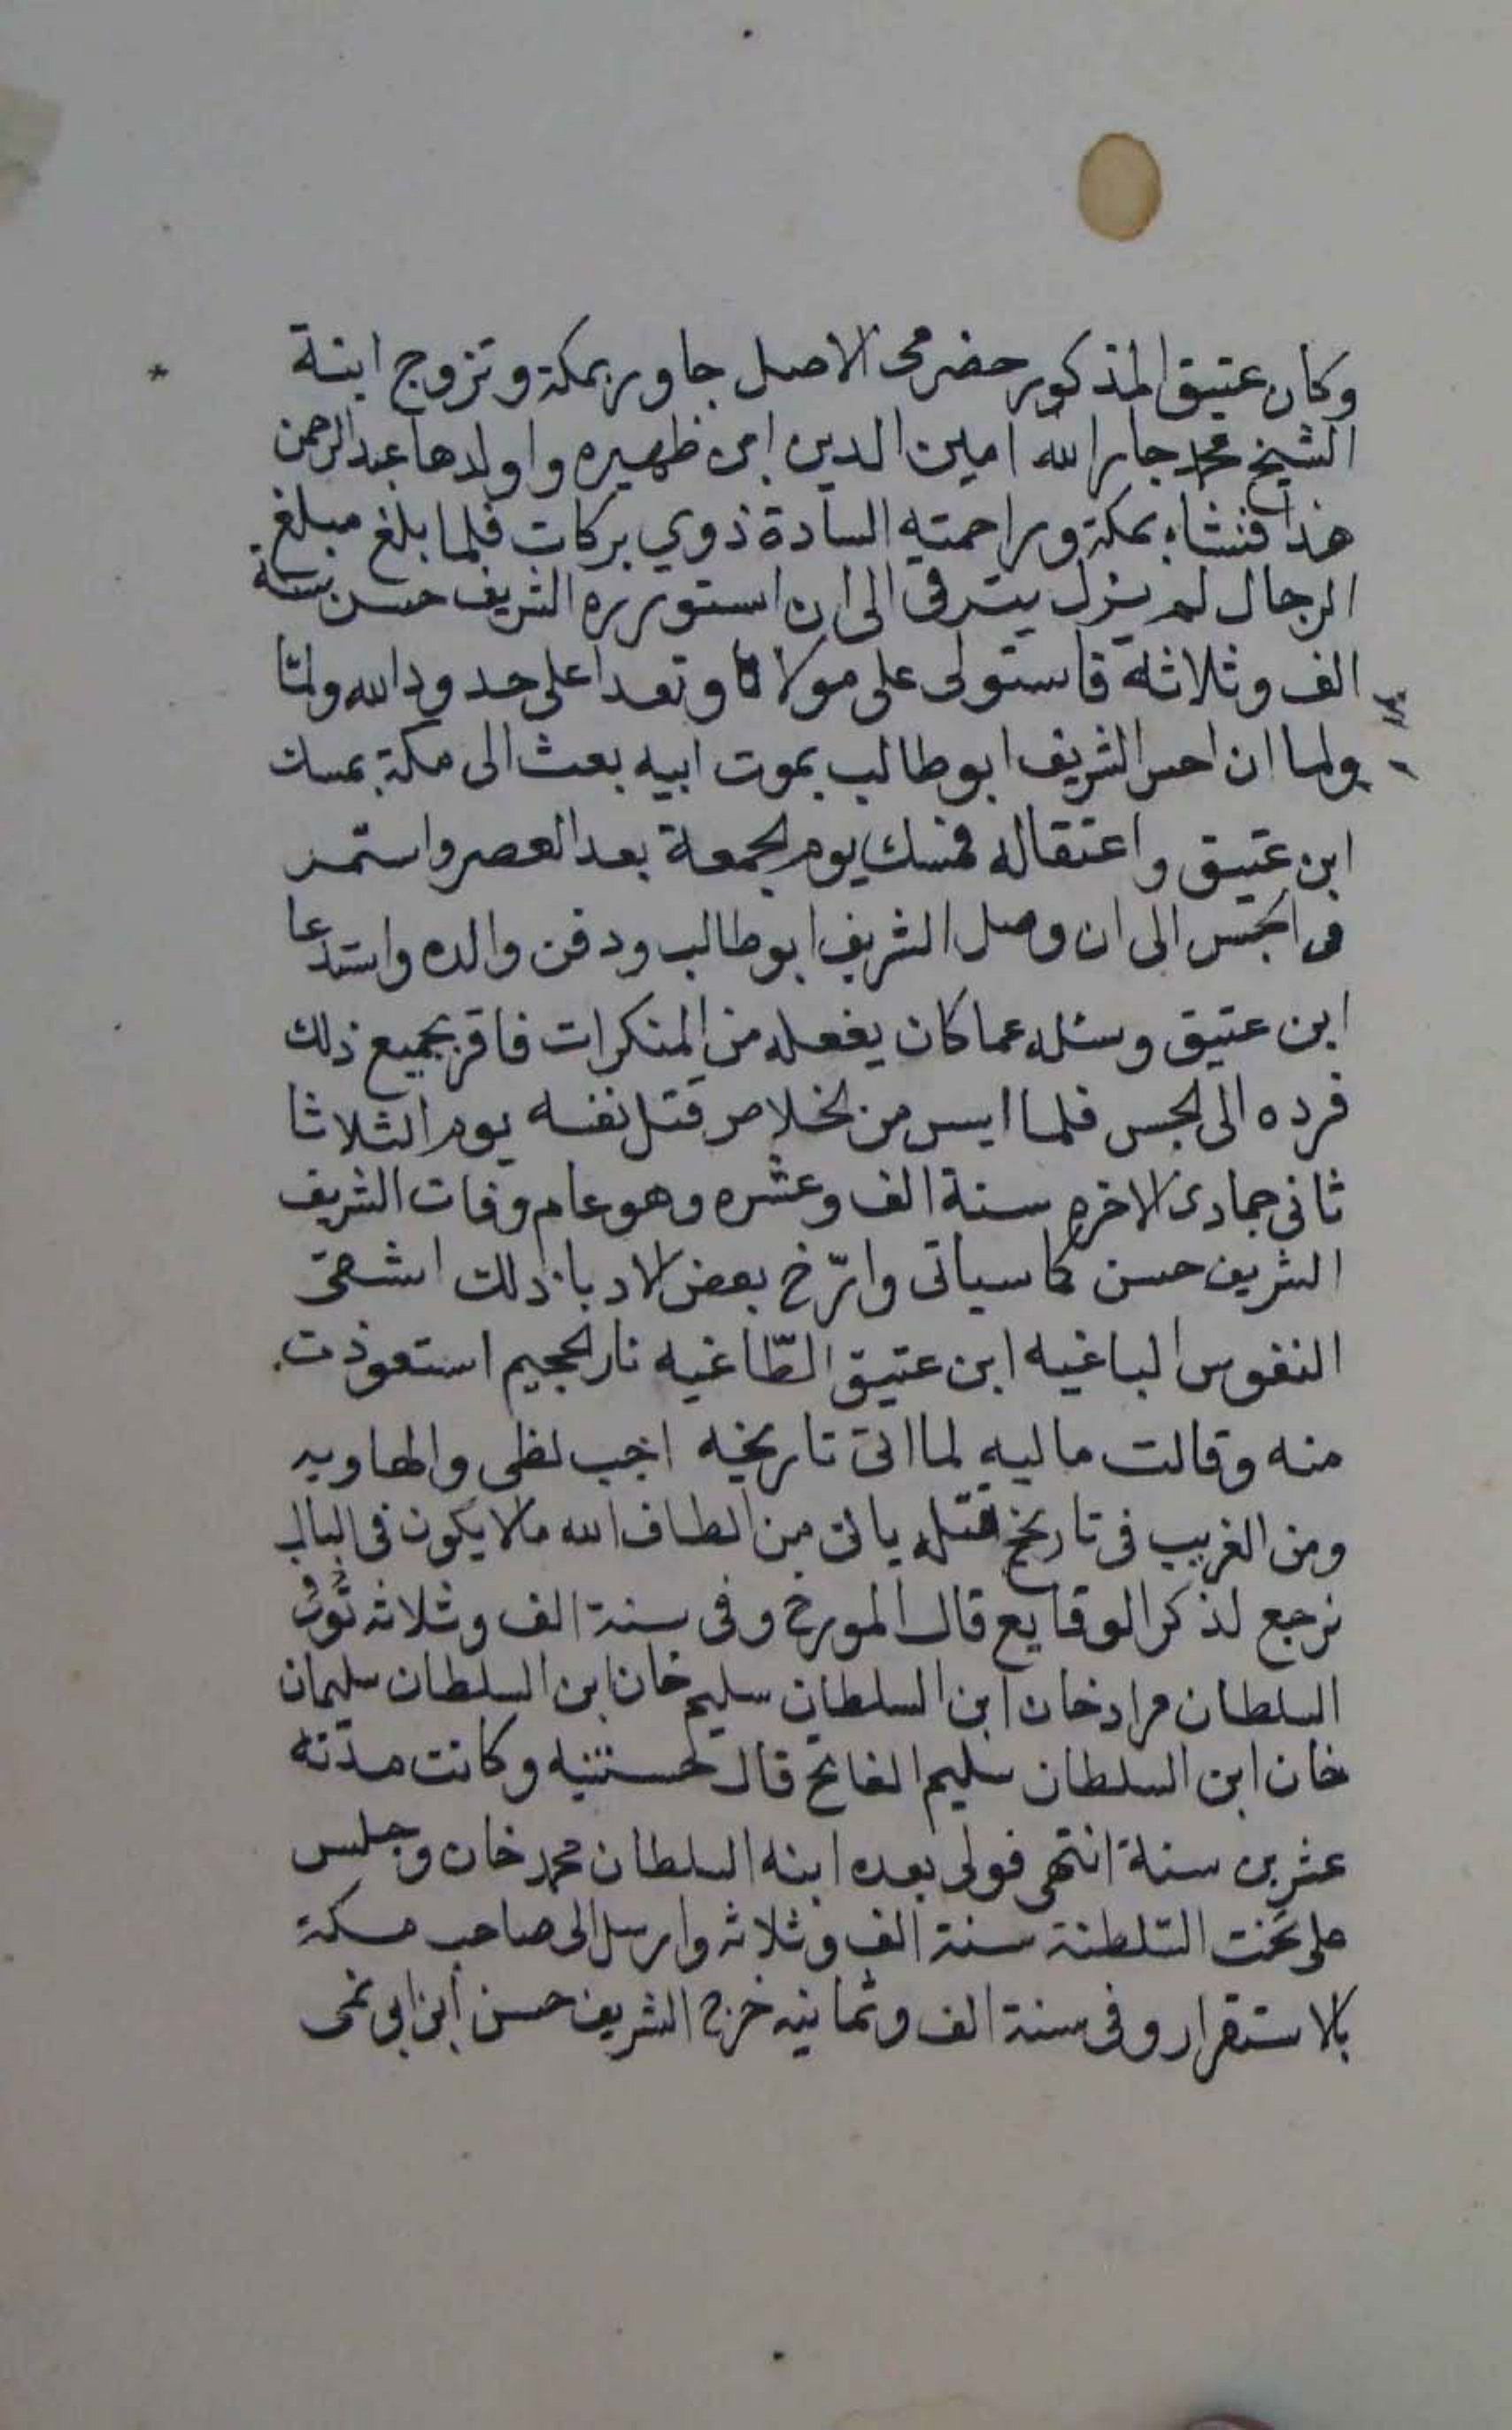 وكان عتيق المذكور حضرمى الاصل جاور بمكة وتزوج ابنة
الشيخ محمد جار الله امين الدين ابن ظهيره واولدها عبد الرحمن
هذا فنشاء بمكة وراحمته السادة ذوي بركات فلما بلغ مبلغ
الرجال لم يزل يترقى الى ان استوزره الشريف حسن سنة
الف وثلاثة فاستولى على مولاه وتعدا على حدود الله ولما
ولما ان احس الشريف ابو طالب بموت ابيه بعث الى مكة بمسك
ابن عتيق واعتقاله فمسك يوم الجمعة بعد العصر واستمر
فى الحبس الى ان وصل الشريف ابو طالب ودفن والده واستدعا
ابن عتيق وسئله عما كان يفعله من المنكرات فاقر بجميع ذلك
فرده الى الحبس فلما ايس من الخلاص قتل نفسه يوم الثلاثا
ثانى جمادى الاخره سنة الف وعشره وهو عام وفات الشريف
الشريف حسن كما سياتى وارّخ بعض الادبا ذلك اشقى
النفوس الباغيه ابن عتيق الطّاغيه نار الجحيم استعوذت
منه وقالت ماليه لما اتى تاريخه اجب لظى والهاويه
ومن الغريب فى تاريخ قتله ياتى من الطاف الله مالا يكون فى البال
نرجع لذكر الوقايع قال المورخ وفى سنة الف وثلاثه تُوُفى
السلطان مراد خان ابن السلطان سليم خان ابن السلطان سليمان
خان ابن السلطان سليم الفاتح قال وكانت مدّته
عشرين سنة انتهى فولى بعده ابنه السلطان محمد خان وجلس
على تخت السّلطنة سنة الف وثلاثه وارسل الى صاحب مكة
بالاستقرار وفى سنة الف وثمانيه خرج الشريف حسن ابن ابى نمى